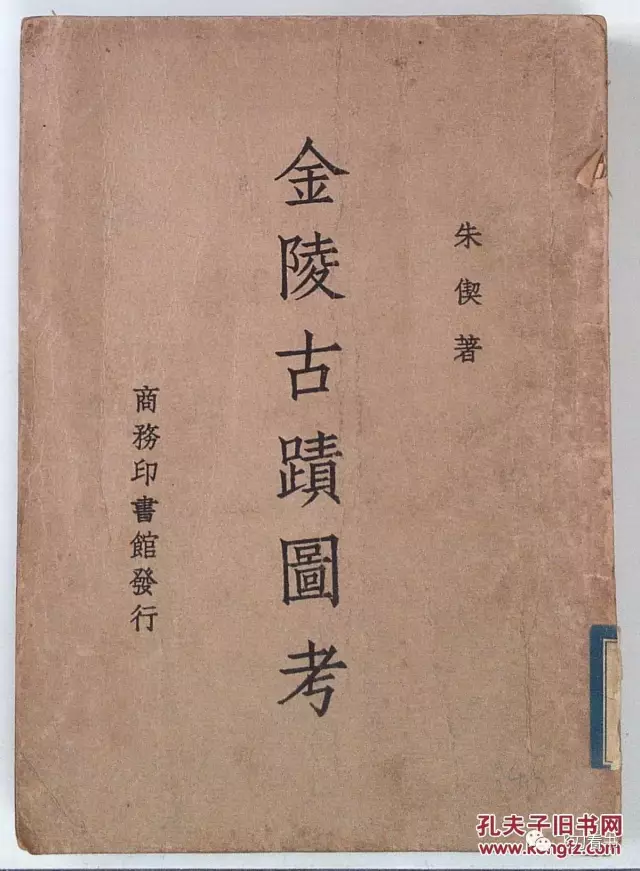 朱偰著
金陵古蹟圖考
商務印書館發行
孔夫子旧书网
www.kongfz.com